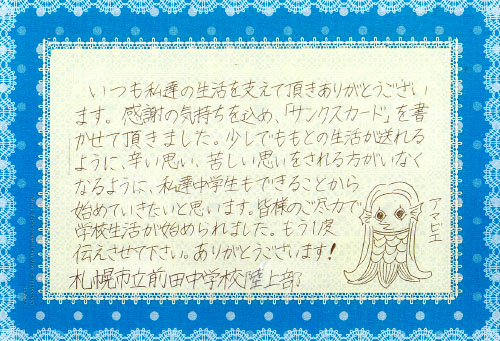 いつも私達の生活を支えて頂きありがとうござい
ます。感謝の気持ちを込め、「サンクスカード」を書
かせて頂きました。少しでももとの生活が送れる
ように、辛い思い、苦しい思いをされる方がいなく
なるように、私達中学生もできることから
始めていきたいと思います。皆様のご尽力で
学校生活が始められました。もう1度
伝えさせて下さい。ありがとうございます!
札幌市立前田中学校陸上部
アマビエ